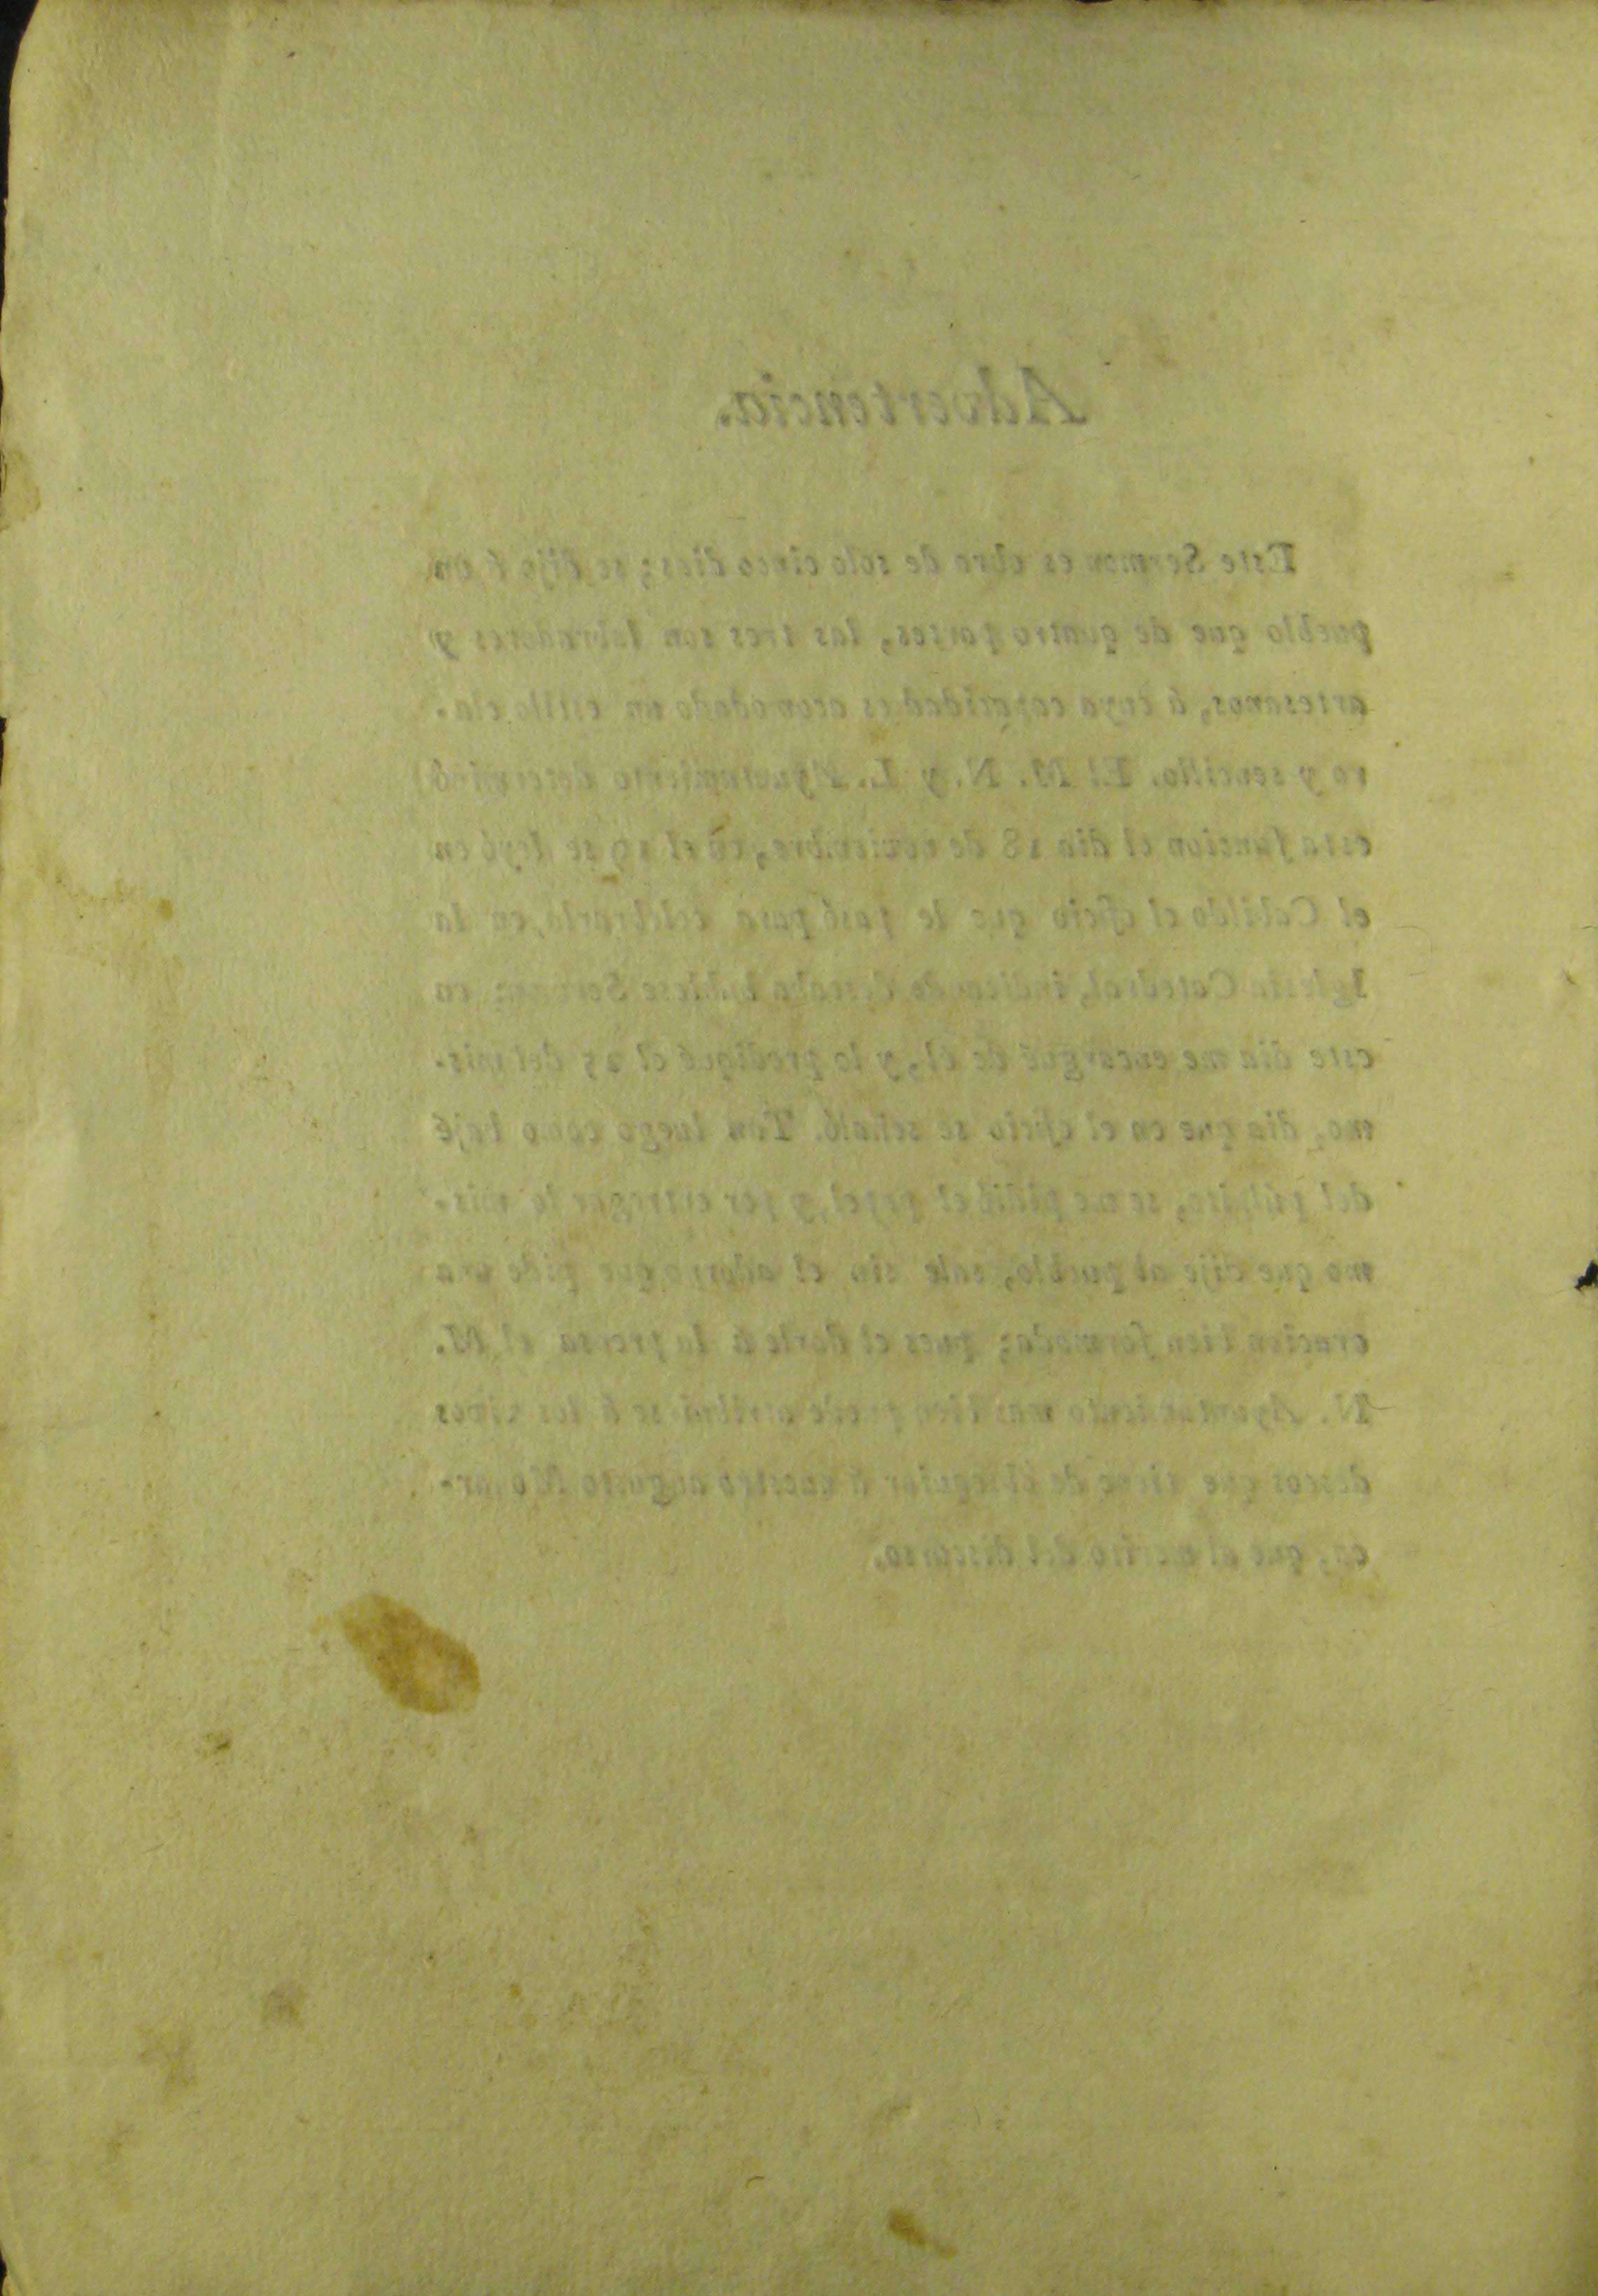 Advertencia.
Este Sermon es obra de solo cinco dias; se dijo á un
pueblo que de quatro partes, las tres son labradores y
artesanos, á cuya capacidad es acomodado un estilo cla-
ro y sencillo. El M. N. y L. Ayuntamiento determinó
esta funcion el dia 18 de noviembre, en el 19 se leyó en
el Cabildo el oficio que le pasó para celebrarla en la
Iglesia Catedral, indicando deseaba hubiese Sermon: en
este dia me encargué de él, y lo prediqué el 25 del mis-
mo, dia que en el oficio se señaló. Tan luego como bajé
del púlpito, se me pidió el papel, y por entregar lo mis-
mo que dije al pueblo, sale sin el adorno que pide una
oracion bien formada; pues el darle á la prensa el M.
N. Ayuntamiento mas bien puede atribuirse á los vivos
deseos que tiene de obsequiar á nuestro augusto Monar-
ca, que al merito del discurso.